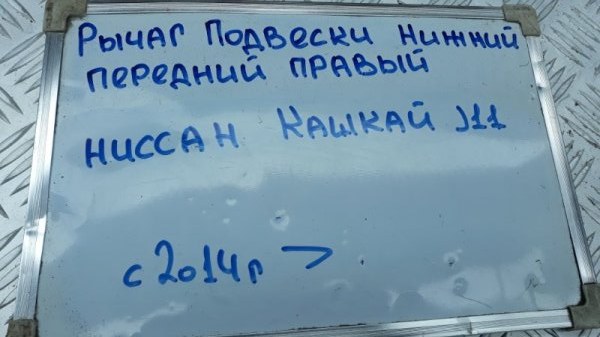 Рычаг Подвески нижний
передний правый
ниссан Кашкай J11
с 2014г >